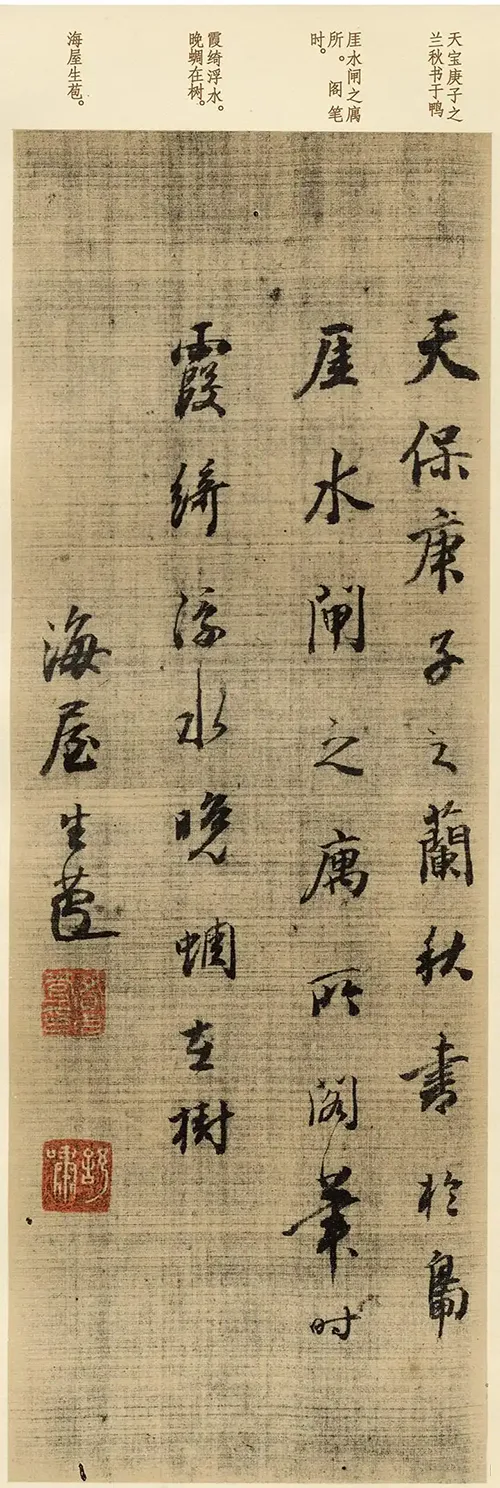 天宝庚子之
兰秋书于鸭
厓水闸之厲
所。阁笔
时。
霞绮浮水。
晚蜩在树。
海屋生苞。
天保庚子之蘭秋書於鳬
厓水閘之厲所閣筆时
霞綺浮水晚蜩在樹
海屋生苞